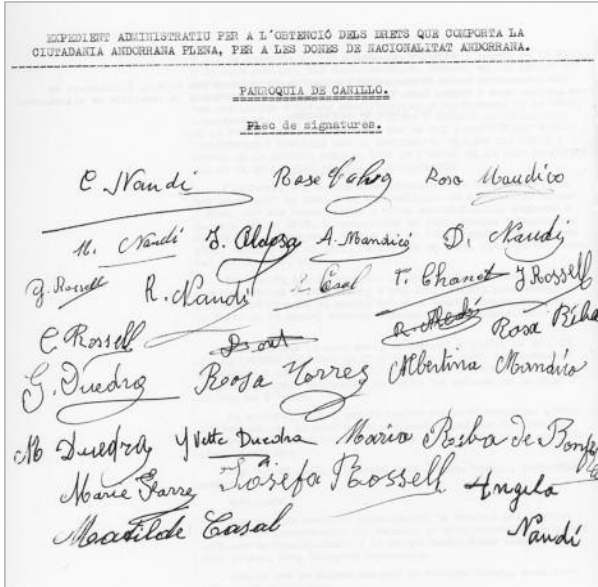 EXPEDIENT ADMINISTRATIU PER A L'OBTENCIÓ DELS DRETS QUE COMPORTA LA
CIUTADANIA ANDORRANA PLENA, PER A LES DONES DE NACIONALITAT ANDORRANA.
PARROQUIA DE CANILLO.
Plec de signatures.
C. Naudi Rose Rosa Mandico
M. Naudí J. Aldosa A. Mandicó D. Naudi
J. Rossell R. Naudi R. Casal T. Chanet J Rossell
C. Rossell Rosa Riba
G. Duedra Roosa Torres Albertina Mandico
M Duedra Yvette Duedra Maria Riba de
Marie Farré Josefa Rossell Angela
Matilde Casal Naudí